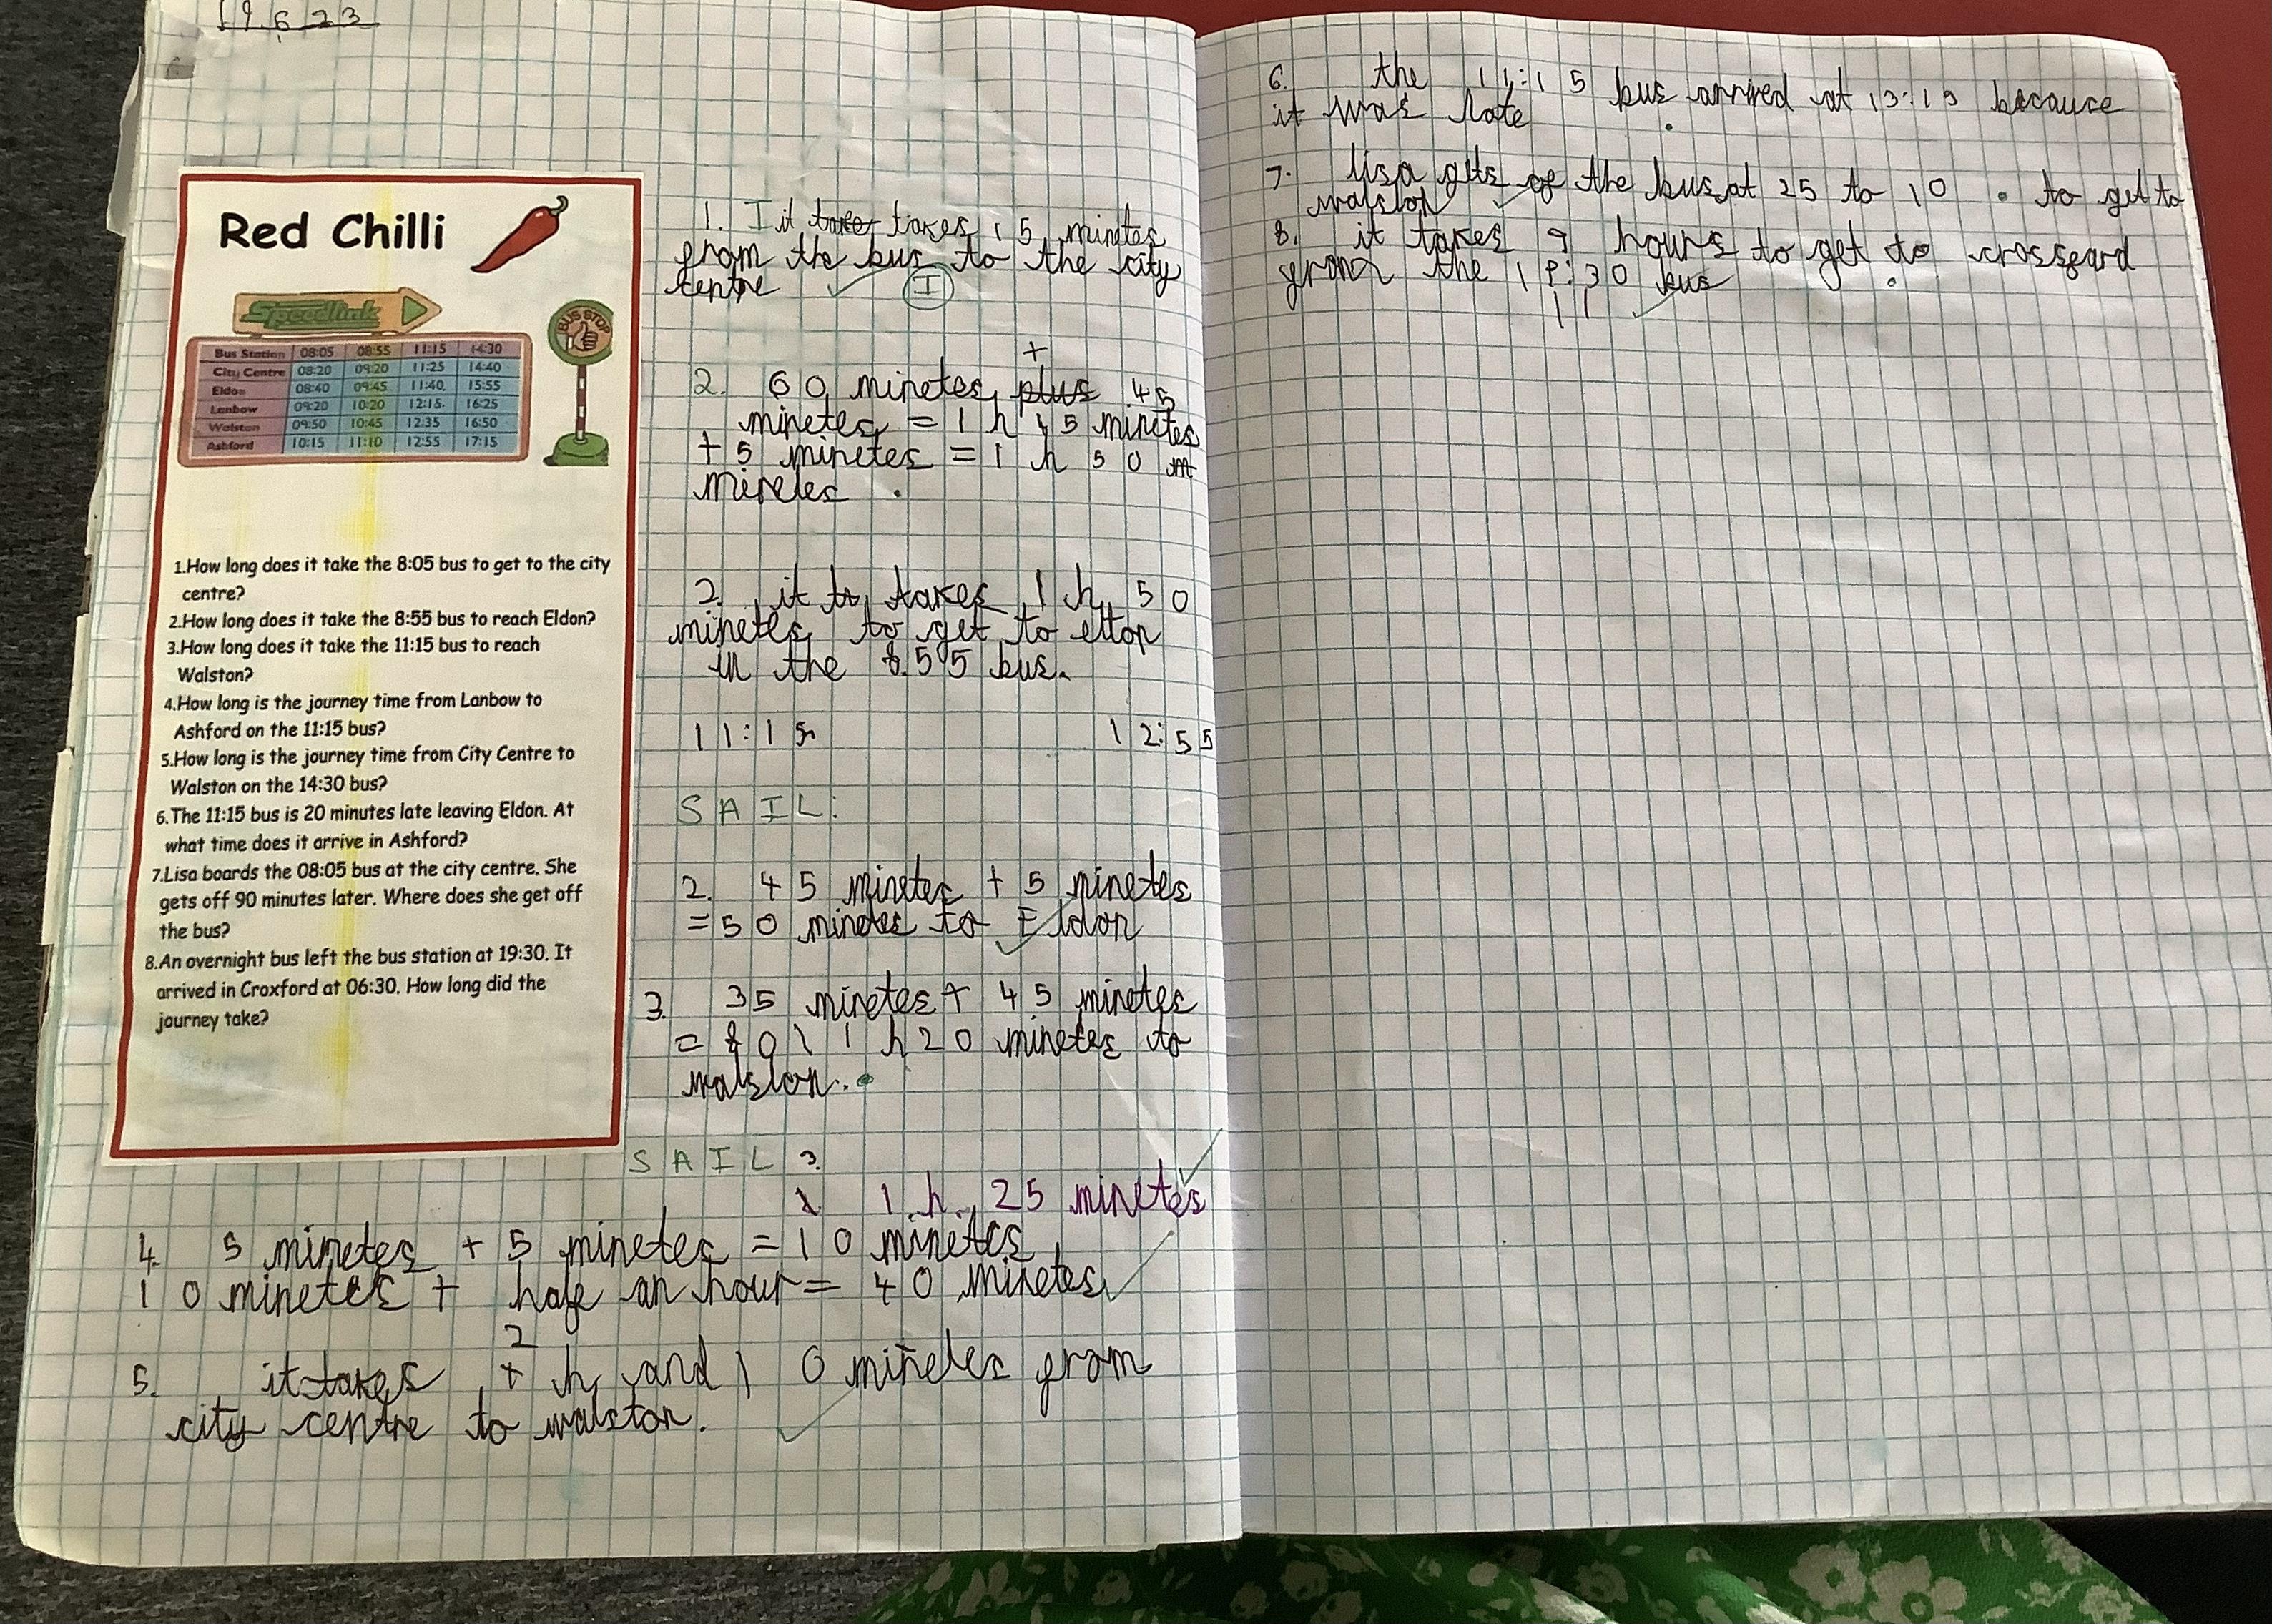 19.6.23
Red Chilli
Speedlink
BUS STOP
Bus Station 08:05 08:55 11:15 14:30
City Centre 08:20 09:20 11:25 14:40
Eldon 08:40 09:45 11:40. 15:55
Lanbow 09:20 10:20 12:15. 16:25
Walston 09:50 10:45 12:35 16:50
Ashford 10:15 11:10 12:55 17:15
1.How long does it take the 8:05 bus to get to the city
centre?
2.How long does it take the 8:55 bus to reach Eldon?
3.How long does it take the 11:15 bus to reach
Walston?
4.How long is the journey time from Lanbow to
Ashford on the 11:15 bus?
5.How long is the journey time from City Centre to
Walston on the 14:30 bus?
6.The 11:15 bus is 20 minutes late leaving Eldon. At
what time does it arrive in Ashford?
7.Lisa boards the 08:05 bus at the city centre. She
gets off 90 minutes later. Where does she get off
the bus?
8.An overnight bus left the bus station at 19:30. It
arrived in Croxford at 06:30. How long did the
journey take?
1. I it take takes 15 minetes
from the bus to the city
centre I
+
2. 60 minetes plus 45
minetes = 1 h 45 minetes
+ 5 minetes = 1 h 50 m
mineles.
2. it tr takes 1 h 50
minetes to get to elton
in the 8.55 bus.
11:15 12:55
SAIL:
2. 45 minetes + 5 minetes
= 50 minetes to Eldon
3. 35 minetes + 45 minetes
= 80 \ 1 h 20 minetes to
walston..
SAIL 3.
1 h. 25 minetes
4. 5 minetes + 5 minetes = 10 minetes
10 minetes + hafe an hour = 40 minetes
2
5. it takes h and 10 mineles from
city centre to walston.
6. the 11:15 bus arrived at 13:15 because
it was late.
7. lisa gets of the bus at 25 to 10. to get to
walston
8. it takes 9 hours to get to crossfard
from the 19:30 bus.
11